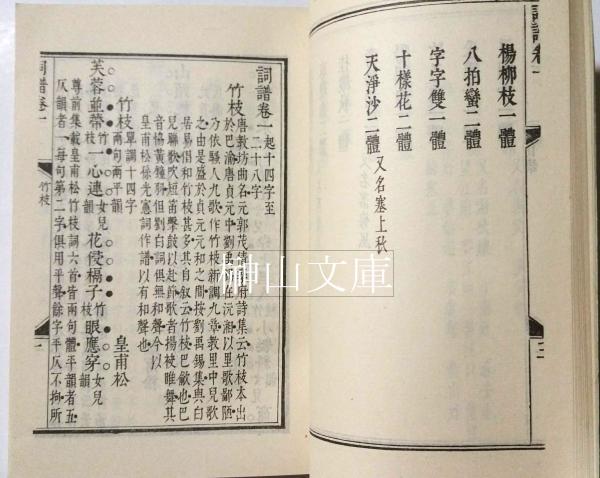 詞譜卷一
楊柳枝一體
八拍蠻二體
字字雙一體
十樣花二體
天淨沙二體 又名塞上秋
詞譜卷一 起十四字至
二十八字
竹枝 唐教坊曲名元郭茂倩樂府詩集云竹枝本出
於巴渝唐貞元中劉禹錫在沅湘以里歌鄙陋
乃依騷人九歌作竹枝新調九章教里中兒歌
之由是盛於貞元元和之間按劉禹錫集與白
居易倡和竹枝甚多其自叙云竹枝巴歈也巴
兒聯歌吹短笛擊鼓以赴節歌者揚袂睢舞其
音協黃鍾羽但劉白詞俱無和聲今以
皇甫松孫光憲詞作譜以有和聲也
竹枝 單調十四字
兩句兩平韻
皇甫松
芙蓉並蒂竹枝一心連女兒韻花侵槅子竹枝眼應穿女兒韻
尊前集載皇甫松竹枝詞六首皆兩句體平韻者五
仄韻者一每句第二字俱用平聲餘字平仄不拘所
詞譜卷一
竹枝
榊山文庫